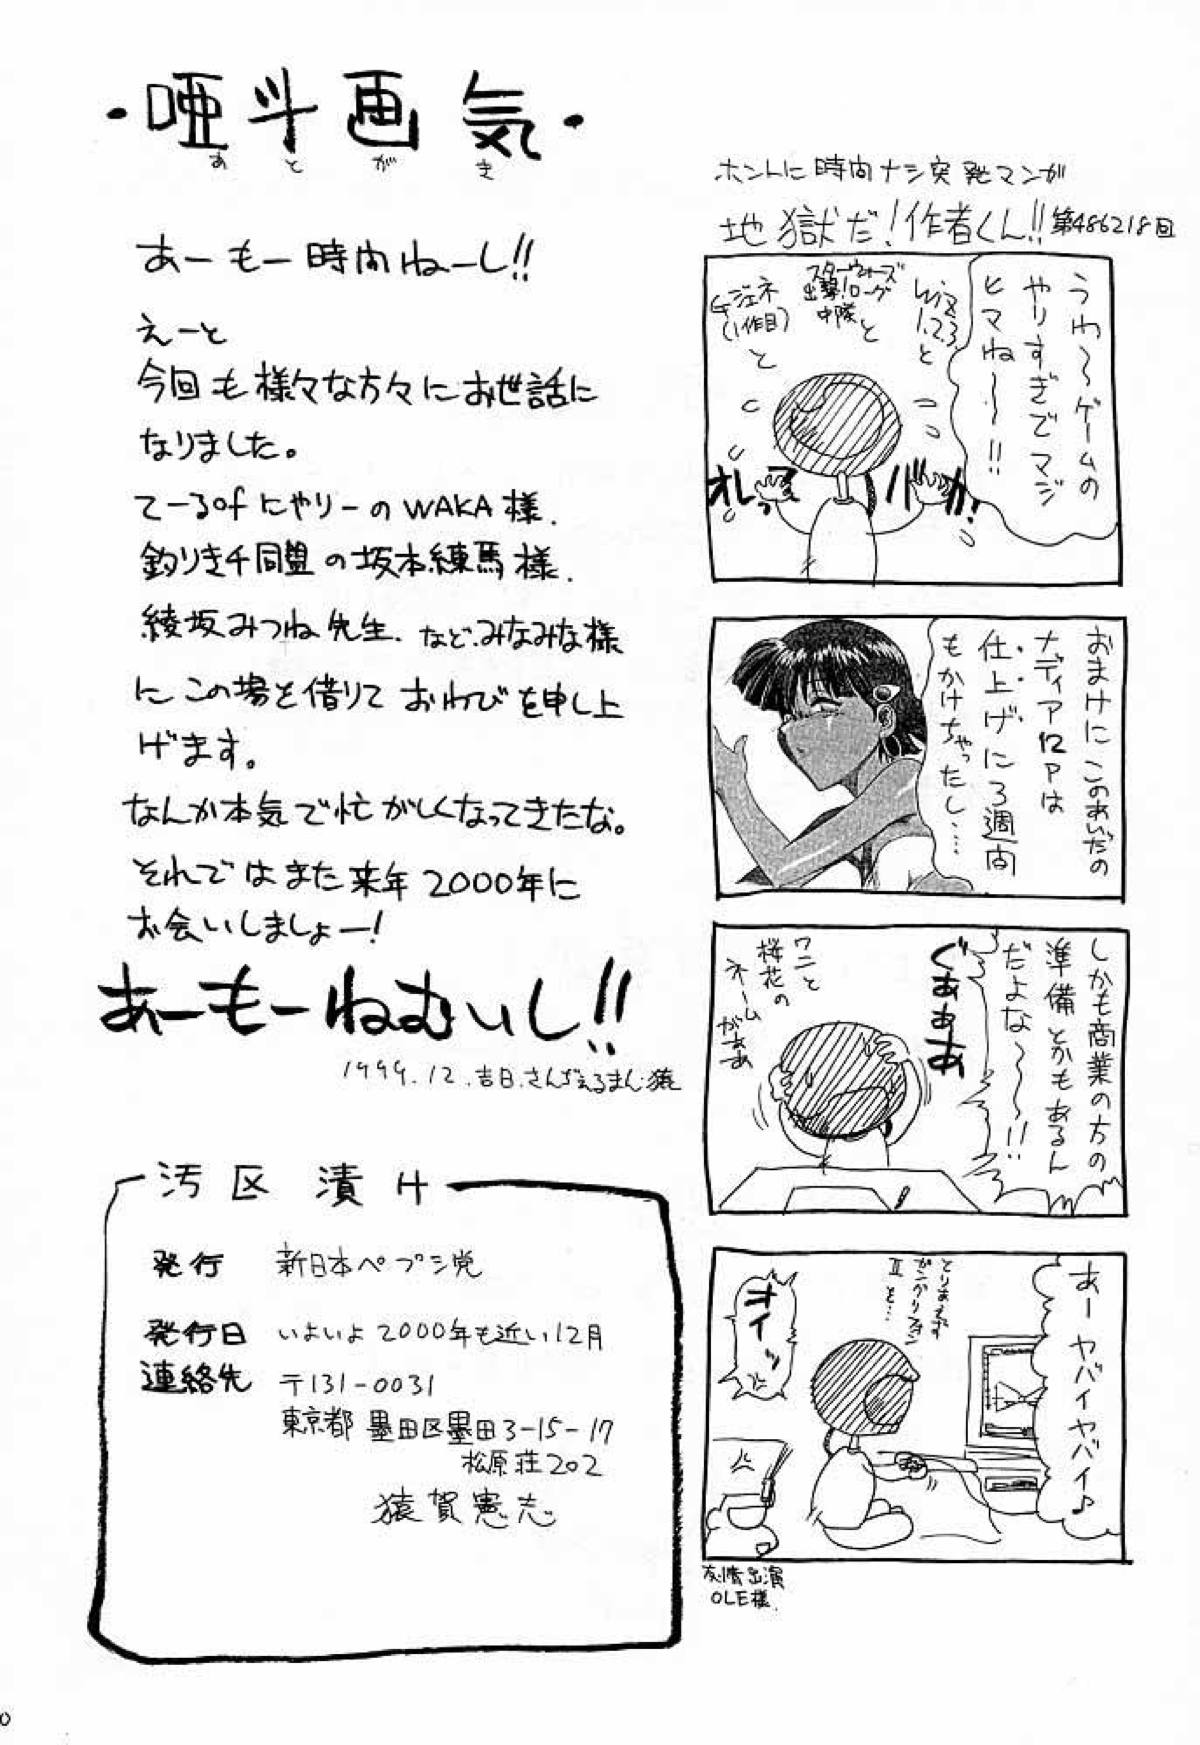 ・唖斗画気・
あとがき
あーもー時間ねーし!!
えーと
今回も様々な方々にお世話に
なりました。
てーるofにやりーのWAKA様.
釣りキチ同盟の坂本練馬様.
綾坂みつね先生、などみなみな様
にこの場を借りておわびを申し上
げます。
なんか本気で忙がしくなってきたな。
それではまた来年2000年に
お会いしましょー!
あーもーねむいし!!
1999.12.吉日.さんぢぇるまん・猿
汚区漬け
発行 新日本ペプシ党
発行日 いよいよ2000年も近い12月
連絡先 〒131-0031
東京都墨田区墨田3-15-17
松原荘202
猿賀憲志
ホントに時間ナシ突発マンガ
地獄だ!作者くん!!第486218回
うわ〜ゲームの
やりすぎでマジ
ヒマね〜〜!!
Wiz
1.2.3.
と
スターウォーズ
出撃!ローグ
中隊と
Gジェネ
(1作目)
と
オレってバカ!
おまけにこのあいだの
ナディア12Pは
仕上げに3週間
もかけちゃったし…
しかも商業の方の
準備とかもあるん
だよな〜〜!!
ぐぁぁぁ
ワニと
桜花の
ネーム
がぁぁ
あーヤバイヤバイ♪
とりあえず
II を…
オイッ
友情出演
OLE様.